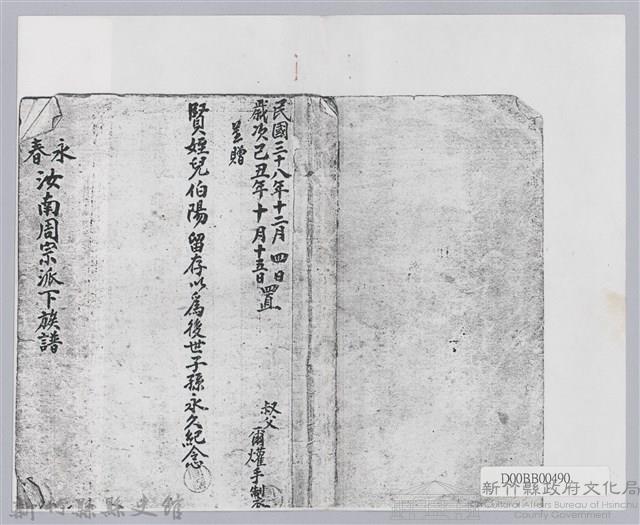 民國三十八年十二月四日置
歲次己丑年十月十五日
呈贈
賢姪兒伯陽留存以為後世子孫永久紀念
叔父爾爟手製
永春
汝南周宗派下族譜
D00BB00490
新竹縣政府文化局
Cultural Affairs Bureau of Hsinchu
County Government
新竹縣縣史館